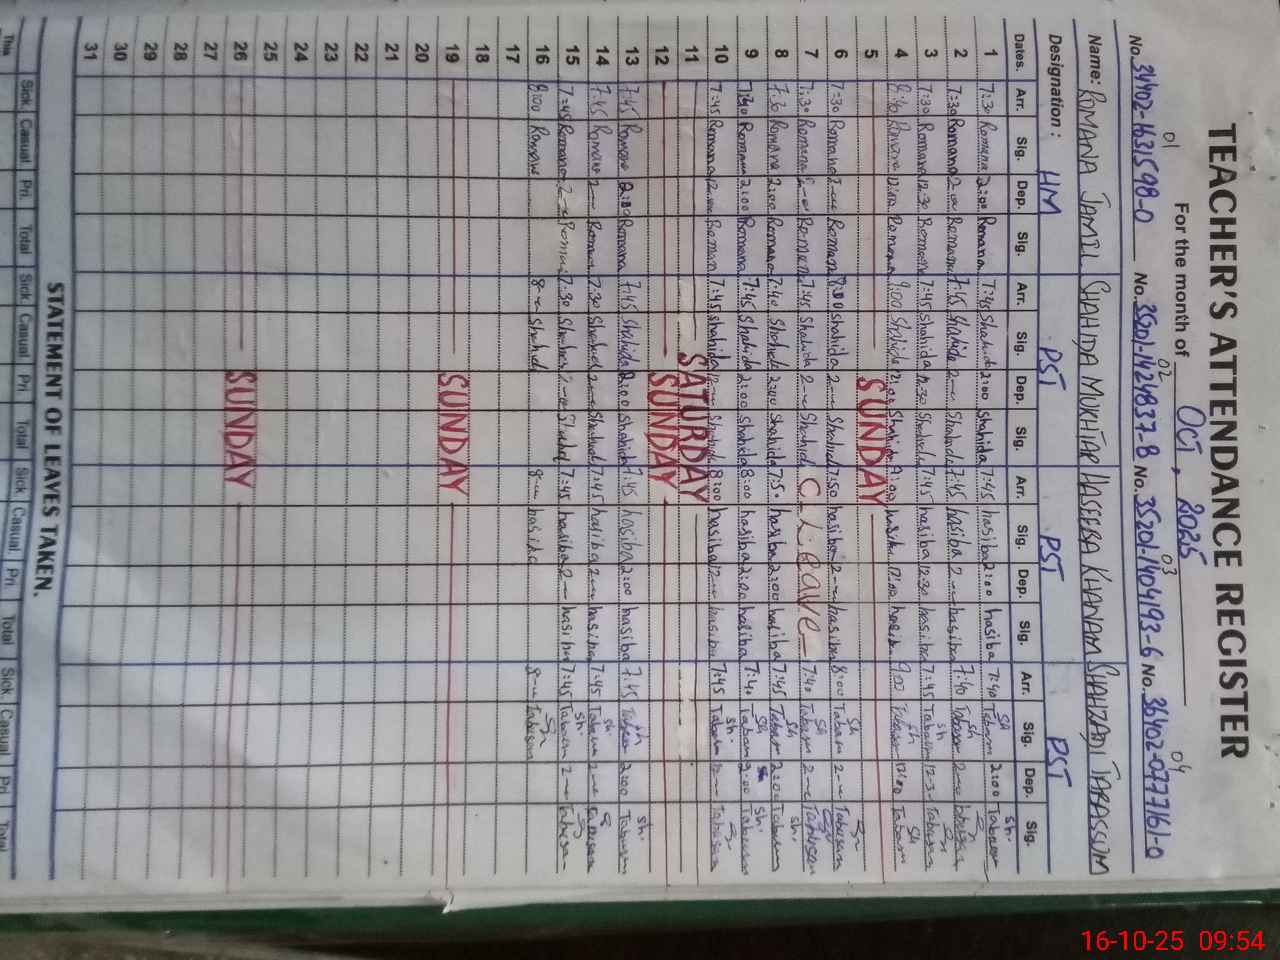 TEACHER'S ATTENDANCE REGISTER
For the month of OCT, 2025
01 02 03 04
No. 34402-1631598-0 No. 35201-1424837-8 No. 35201-1404193-6 No. 36402-0777161-0
Name: ROMANA JAMIL SHAHIDA MUKHTAR HASEEBA KHANAM SHAHZADI TABASSUM
Designation: HM PST PST PST
Dates. Arr. Sig. Dep. Sig. Arr. Sig. Dep. Sig. Arr. Sig. Dep. Sig. Arr. Sig. Dep. Sig.
1 7:30 Romana 2:00 Romana 7:45 Shahida 2:00 Shahida 7:45 hasiba 2:00 hasiba 7:40 Tabasm 2:00
2 7:30 Romana 2:00 Romana 7:45 Shahida 2 Shahida 7:45 hasiba 2 hasiba 7:40
3 7:30 Romana 12:30 Romana 7:45 Shahida 12:30 7:45 hasiba 12:30 hasiba 7:45
4 8:40 Romana 12:00 Romana 9:00 Shahida 12:00 Shahida 9:00 12:00 hasiba 9:00 12:00
5 SUNDAY
6 7:30 Romana 2 Romana 8:00 Shahida 2 Shahida 7:50 hasiba 2 hasiba 8:00 2
7 7:30 Romana 2 Romana 7:45 Shahida 2 Shahida C. Leave 7:40 2
8 7:30 Romana 2:00 Romana 7:40 Shahida 2:00 Shahida 7:50 hasiba 2:00 hasiba 7:45 2:00
9 7:30 Romana 2:00 Romana 7:45 Shahida 2:00 Shahida 8:00 hasiba 2:00 hasiba 7:40 2:00
10 7:45 Romana 12:00 Romana 7:45 Shahida 12 Shahida 8:00 hasiba 12 hasiba 7:45 12
11 SATURDAY
12 SUNDAY
13 7:45 Romana 2:00 Romana 7:45 Shahida 2:00 Shahida 7:45 hasiba 2:00 hasiba 7:45 2:00
14 7:45 Romana 2 Romana 7:30 Shahida 2 Shahida 7:45 hasiba 2 hasiba 7:45 2
15 7:45 Romana 2 Romana 7:30 Shahida 2 Shahida 7:45 hasiba 2 hasiba 7:45 2
16 8:00 Romana 8 Shahida 8 hasiba 8
17
18
19 SUNDAY
20
21
22
23
24
25
26 SUNDAY
27
28
29
30
31
STATEMENT OF LEAVES TAKEN.
This Sick Casual Pri. Total Sick Casual Pri. Total Sick Casual. Pri Total Sick Casual Pri Total
16-10-25 09:54